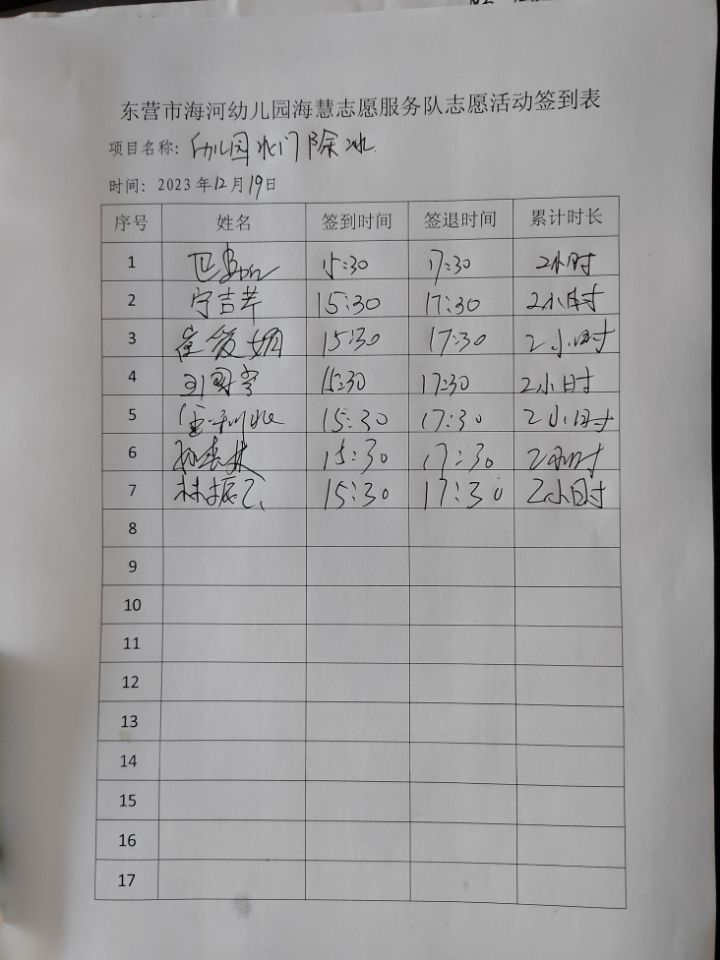 东营市海河幼儿园海慧志愿服务队志愿活动签到表
项目名称：幼儿园 门除冰
时间：2023年12月19日
序号 姓名 签到时间 签退时间 累计时长
1 15:30 17:30 2小时
2 宁吉芹 15:30 17:30 2小时
3 崔爱娟 15:30 17:30 2小时
4 15:30 17:30 2小时
5 15:30 17:30 2小时
6 15:30 17:30 2小时
7 林振 15:30 17:30 2小时
8
9
10
11
12
13
14
15
16
17